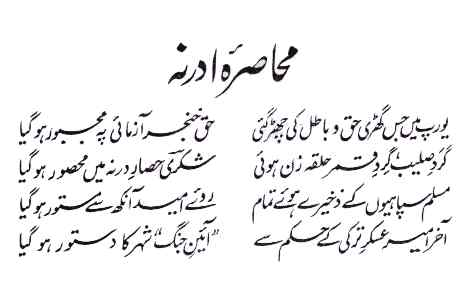 محاصرۂ ادرنہ
یورپ میں جس گھڑی حق و باطل کی چھڑ گئی حق خنجر آزمائی پہ مجبور ہو گیا
گردِ صلیب، گردِ قمر حلقہ زن ہوئی شکری حصارِ درنہ میں محصور ہو گیا
مسلم سپاہیوں کے ذخیرے ہوئے تمام روئے امید آنکھ سے مستور ہو گیا
آخر امیرِ عسکرِ ترکی کے حکم سے ”آئینِ جنگ“ شہر کا دستور ہو گیا